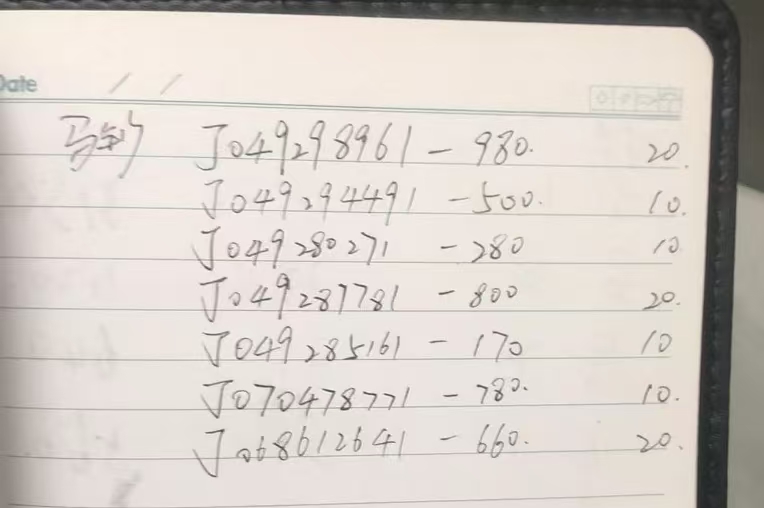 Date / /
马钞 J049298961 - 980. 20.
J049294491 - 500. 10.
J049280271 - 280 10
J049287781 - 800 20.
J049285161 - 170 10
J070478771 - 780. 10.
J068612641 - 660. 20.